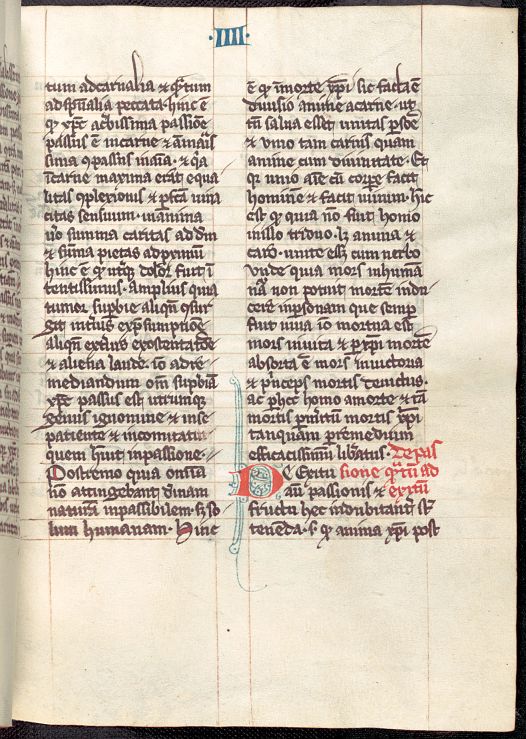 IIII
tum ad carnalia & qͣntum
ad spūalia peccata. hinc ē
qͥ xp̄c acͤbissima passiōe
passus ē in carne & amaris
sima ꝯpassus in aīa. & qͣa
ī carne maxima erat equa
litas ꝯplexionis & ꝑfcā uiua
citas sensuum. in anima
uͦo summa caritas ad dm̄
& sūma pietas ad pximū
hinc ē qͥ utqͥꝫ dolor fuit ī
tentissimus. amplius quia
tumor supbie aliqn̄ ꝯsur
git int̄ius ex p̄sumptiōe
aliqn̄ ext̄ius ex ostentatōe
& aliena laude. iō ad re
mediandum om̄ supbiā
xp̄c passus est utrumqꝫ
genus ignominie & in se
patiente & in comitatu
quem hūit in passione.
Postremo quia om̄ia
nō attingebant diuinam
naturā inpassibilem sꝫ so
lum humanam. Hinc
ē qͥ ī morte xp̄i sic facta ē
diuisio anime a carne. ut
tn̄ salua esset unitas ꝑsōe
& unio tam carnis quam
anime cum diuinitate. Et
qꝫ unio aīe cū corpe facit
hominē & facit uiuum. hīc
est qͥ quia nō fuit homo
in illo triduo. lꝫ anima &
caro unite eēt cum uerbo
Unde quia mors in huma
na nā non potuit mortē indu
cere in psonam que semper
fuit uiua iō mortua est
mors in uita & ꝑ xp̄i mortē
absorta ē mors in uictoria
& pͥnceps mortis deuictus.
ac ꝑ hec homo a morte & cā
mortis ꝑ mitū mortis xp̄i
tanquam ꝑ remedium
efficacissimū libatus. De pas
De Exitu sione qͣntū ad
aūt passionis & exitū
fructu hec indubitant̄ st
tenēda. s. qͥ anima xp̄i post